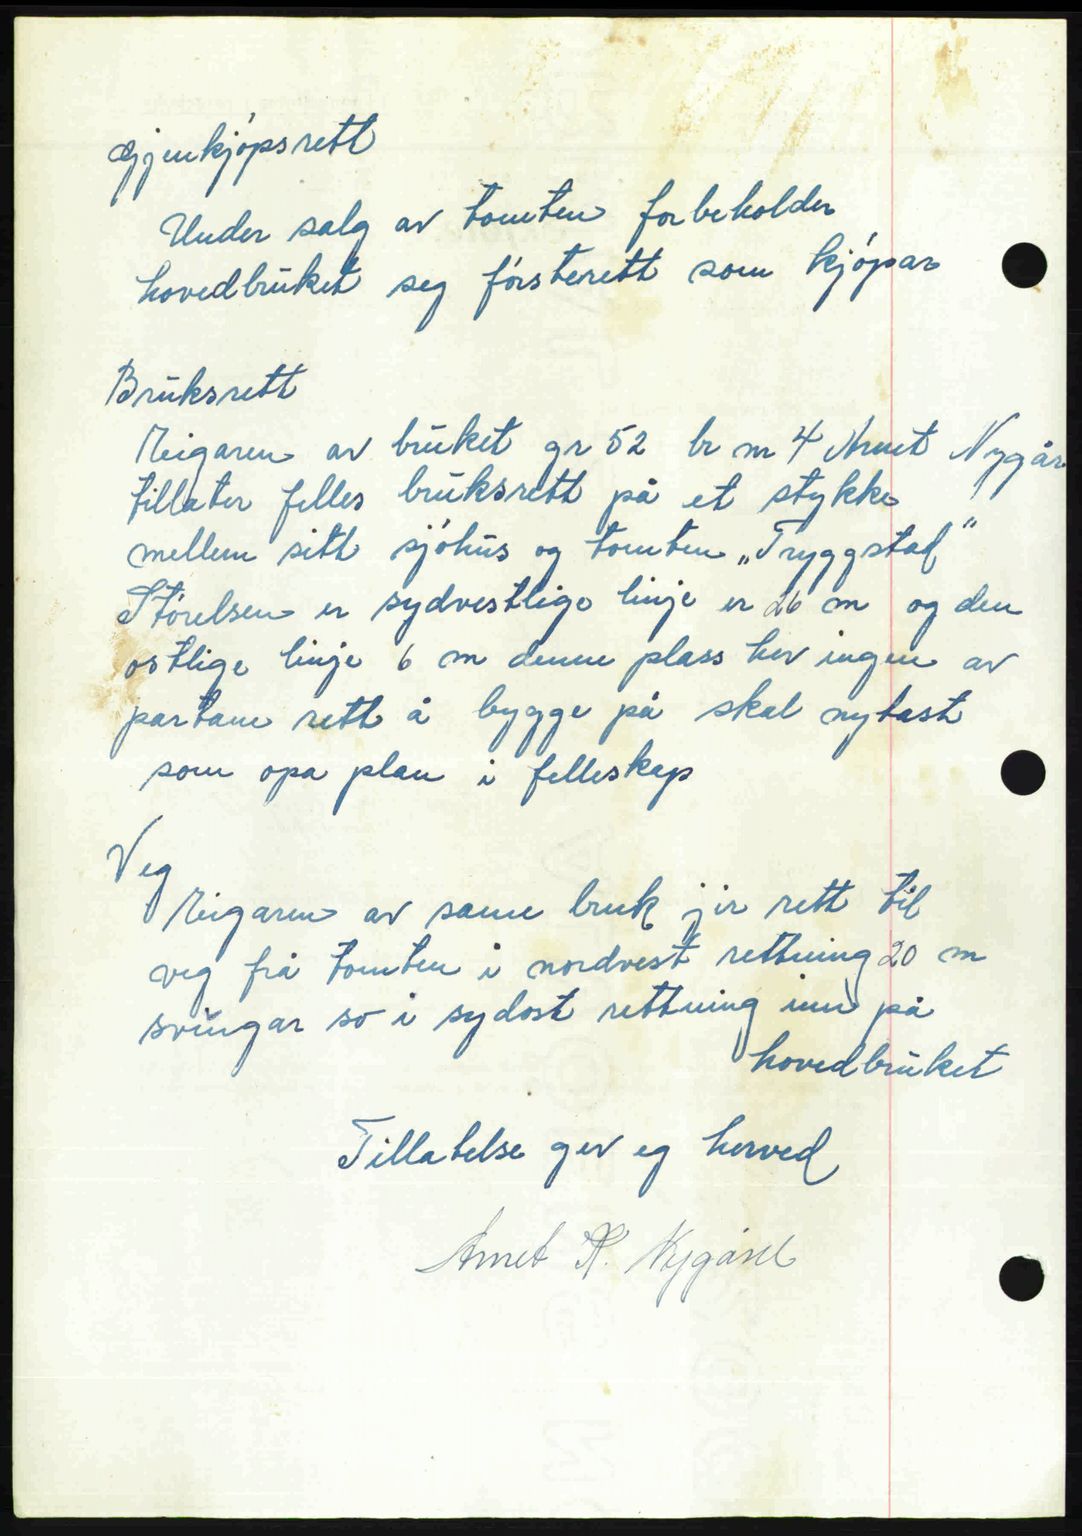 Gjenkjópsrett
Under salg av tomten forbeholder
hovedbruket seg fórsterett som kjópar
Bruksrett
Eigaren av bruket gr 52 br nr 4 Arnet Nygår
tillater felles bruksrett på et stykke
mellem sitt sjóhus og tomten „Tryggstad"
Störelsen er sydvestlige linje er 26 m og den
ostlige linje 6 m denne plass hev ingen av
partane rett å bygge på skal nytast
som opa plan i felleskap
Veg
Eigaren av same bruk jir rett til
veg frå tomten i nordvest rettning 20 m
svingar so i sydost rettning inn på
hovedbruket
Tillatelse gev eg herved
Arnet K. Nygård